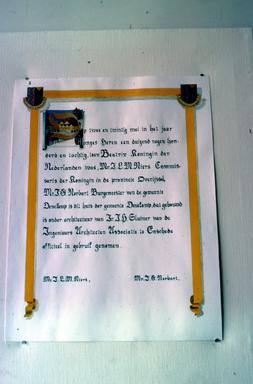 twee en twintig mei in het jaar
onzes Heren een duizend negen hon-
derd en tachtig, toen Beatrix Koningin der
Nederlanden was, Mr. J.L.M. Niers Commis-
saris der Koningin in de provincie Overijssel,
Mr. J.G. Norbart Burgemeester van de gemeente
Denekamp is dit huis der gemeente Denekamp, dat gebouwd
is onder architectuur van Ir. J.H. van de
Ingenieurs Architecten Associatie te Enschede
officieel in gebruik genomen.
Mr. J.L.M. Niers,
Mr. J.G. Norbart.